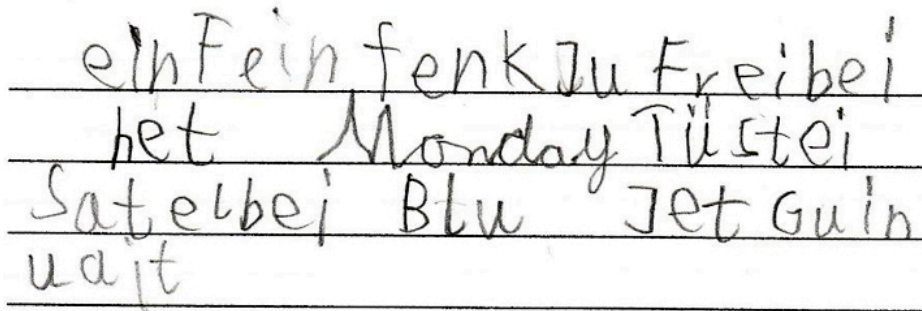 einFein fenk Ju Freibei
het Monday Tüstei
Satelbei Blu Jet Guin
uait